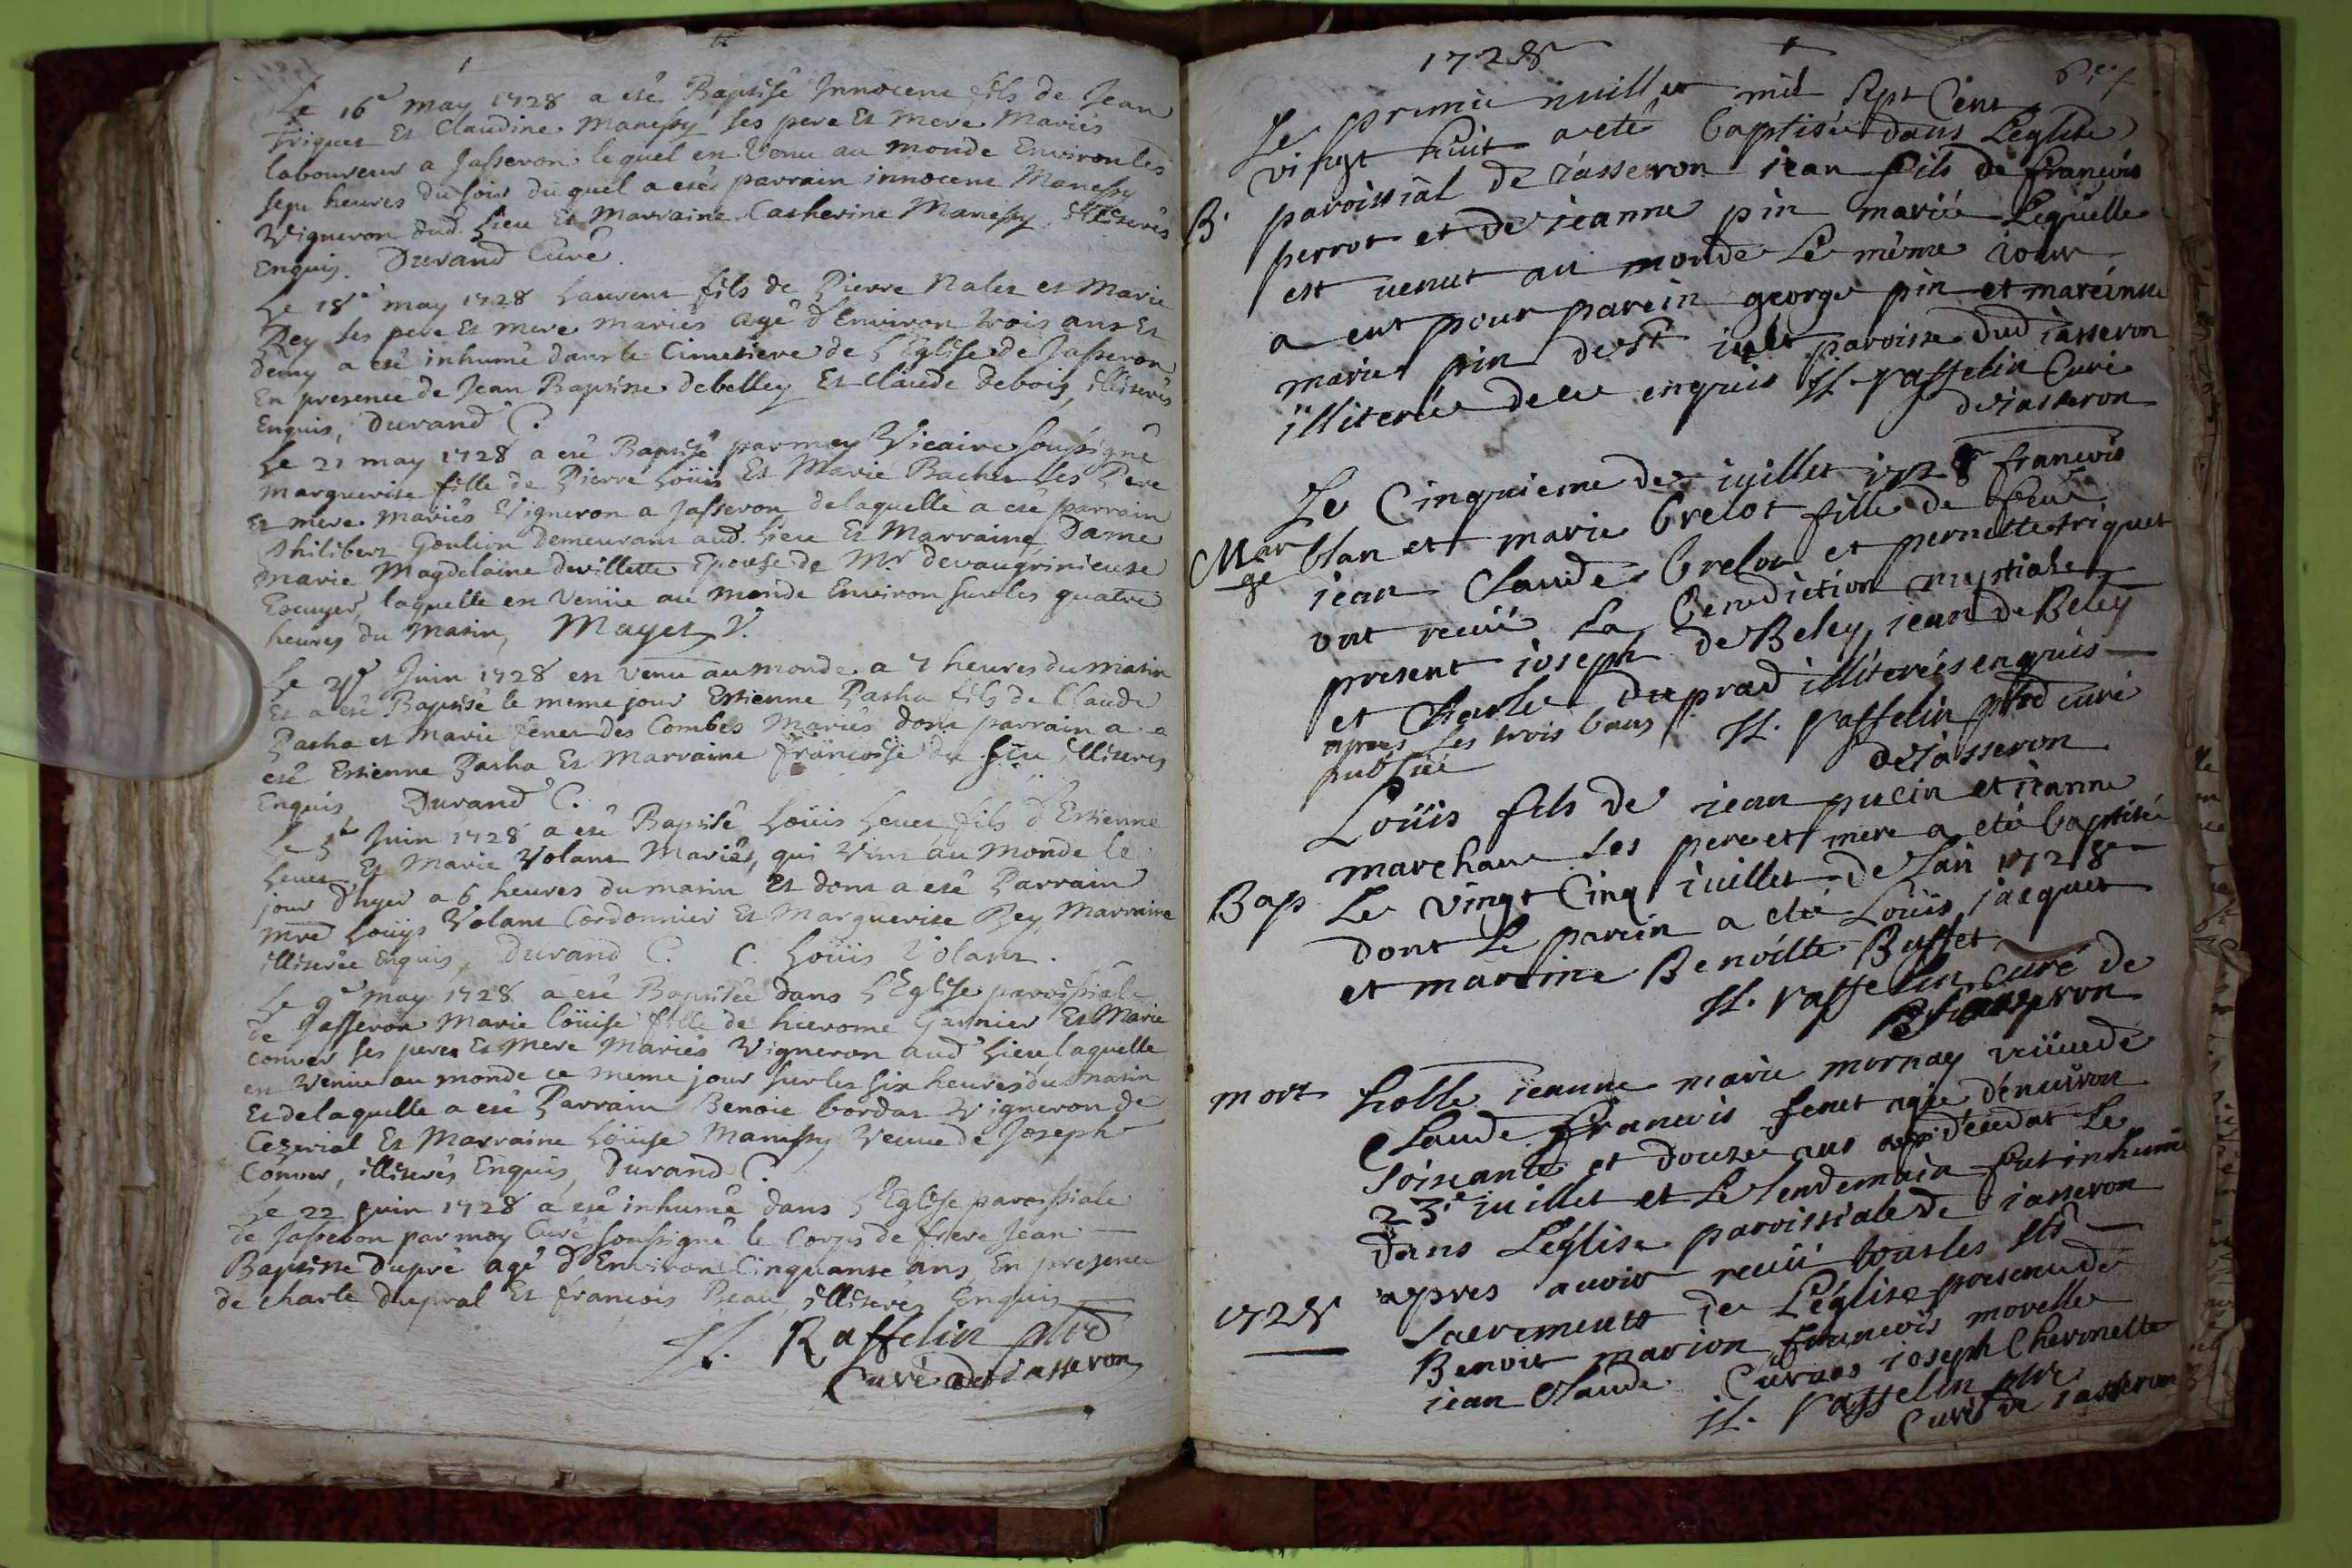 Le 16e may 1728 a eté Baptisé Innocent fils de Jean
Triquet Et Claudine Manessy ses pere Et mere Mariés
laboureur a Jasseron lequel en Venu au monde Environ les
sept heures du soir duquel a etés parrain innocent Manessy
Vigneron dud. Lieu Et Marraine Catherine Manessy illiterés
Enquis. Durand Curé.
Le 18e may 1728 Laurent fils de Pierre Nalet et Marie
Rey ses pere Et mere mariés agé d'Environ trois ans Et
Demy a eté inhumé dans le Cimetiere de L'Eglise de Jasseron
En presence de Jean Baptiste debelley Et Claude debois, illiterés
Enquis, Durand C.
Le 21 may 1728 a eté Baptisé par moy Vicaire soussigné
marguerite fille de Pierre Loüis Et Marie Bachet ses Pere
Et mere mariés Vigneron a Jasseron delaquelle a eté parrain
Philibert Goulion demeurant aud. Lieu Et Marraine Dame
Marie Magdelaine devillette Epouse de Mr. devaugrinieuse
Escuyer, laquelle en Venüe au monde Environ sur les quatre
heures du Matin, Mayet V.
Le Juin 1728 en Venu au monde a 7 heures du matin
Et a eté Baptisé le meme jour Estienne Pacha fils de Claude
Pacha et Marie fenet des Combes Mariés dont parrain a
eté Estienne Pacha Et Marraine francoise du illiterés
Enquis Durand C.
Le Juin 1728 a eté Baptisé Loüis Levet fils d'Estienne
Levet Et Marie Volant Mariés, qui Vint au Monde le
jour d'hyer a 6 heures du matin Et dont a eté Parrain
mre Loüys Volant Cordonnier Et Marguerite Rey Marraine
illiterée Enquis, Durand C. C. Loüis Volant.
Le 9e may 1728 a eté Baptisée dans L'Eglise paroissiale
de Jasseron Marie loüise fille de hierome Garnier Et Marie
Convert ses peres Et Mere Mariés Vigneron aud Lieu laquelle
en Venüe au monde ce meme jour sur les six heures du Matin
Et delaquelle a eté Parrain Benoit bordat Vigneron de
Ceyzeriat Et Marraine Loüise Manissy Veuve de Joseph
Convert, illiterés Enquis, Durand C.
Le 22 juin 1728 a eté inhumé dans L'Eglise paroissiale
de Jasseron par moy Curé soussigné le Corps de frere Jean
Baptiste dupré agé d'Environ Cinquante ans En presence
de charle dupral Et francois Beau, illiterés Enquis
Raffelin ptre
Curé de Jasseron
1728
Le premie iuillet mil Sept Cent
vingt huit a eté baptisé dans Leglise
B. paroissial de iasseron iean fils de francois
perrot et de ieanne pin marié Lequelle
est venut au monde Le même iour
a eut pour parein george pin et mareinne
marie pin de St paroisse dud iasseron
illiterée de ce enquis raffelin Curé
de iasseron
Le Cinquieme de iuillet 1728 francois
Mar blan et marie brelot fille de feüe
ge iean Claude brelot et pernette triquet
ont receü La benediction nuptiale
present ioseph de Beley, iean de Beley
et Charle duprad illiterées enquis
apres les trois bans raffelin ptre curé
publié de iasseron
Loüis fils de iean pucin et ieanne
marchant ses pere et mere a eté baptisée
Bap Le vingt Cinq iuillet de Lan 1728
dont Le parein a eté Loüis jacquet
et mareine Benoitte Buffet
raffelin curé de
iasseron
mort holle ieanne marie mornay veüue de
Claude francois fenet agée d'enuiron
soixante et douze ans Le
23e iuillet et Le lendemain fut inhumé
dans Léglise paroissiale de iasseron
apres auoir receü tous les
1728 sacrements de Léglise presence de
Benoit marion francois morelle
iean Claude ioseph Cheronette
raffelin ptre
Curé de iasseron